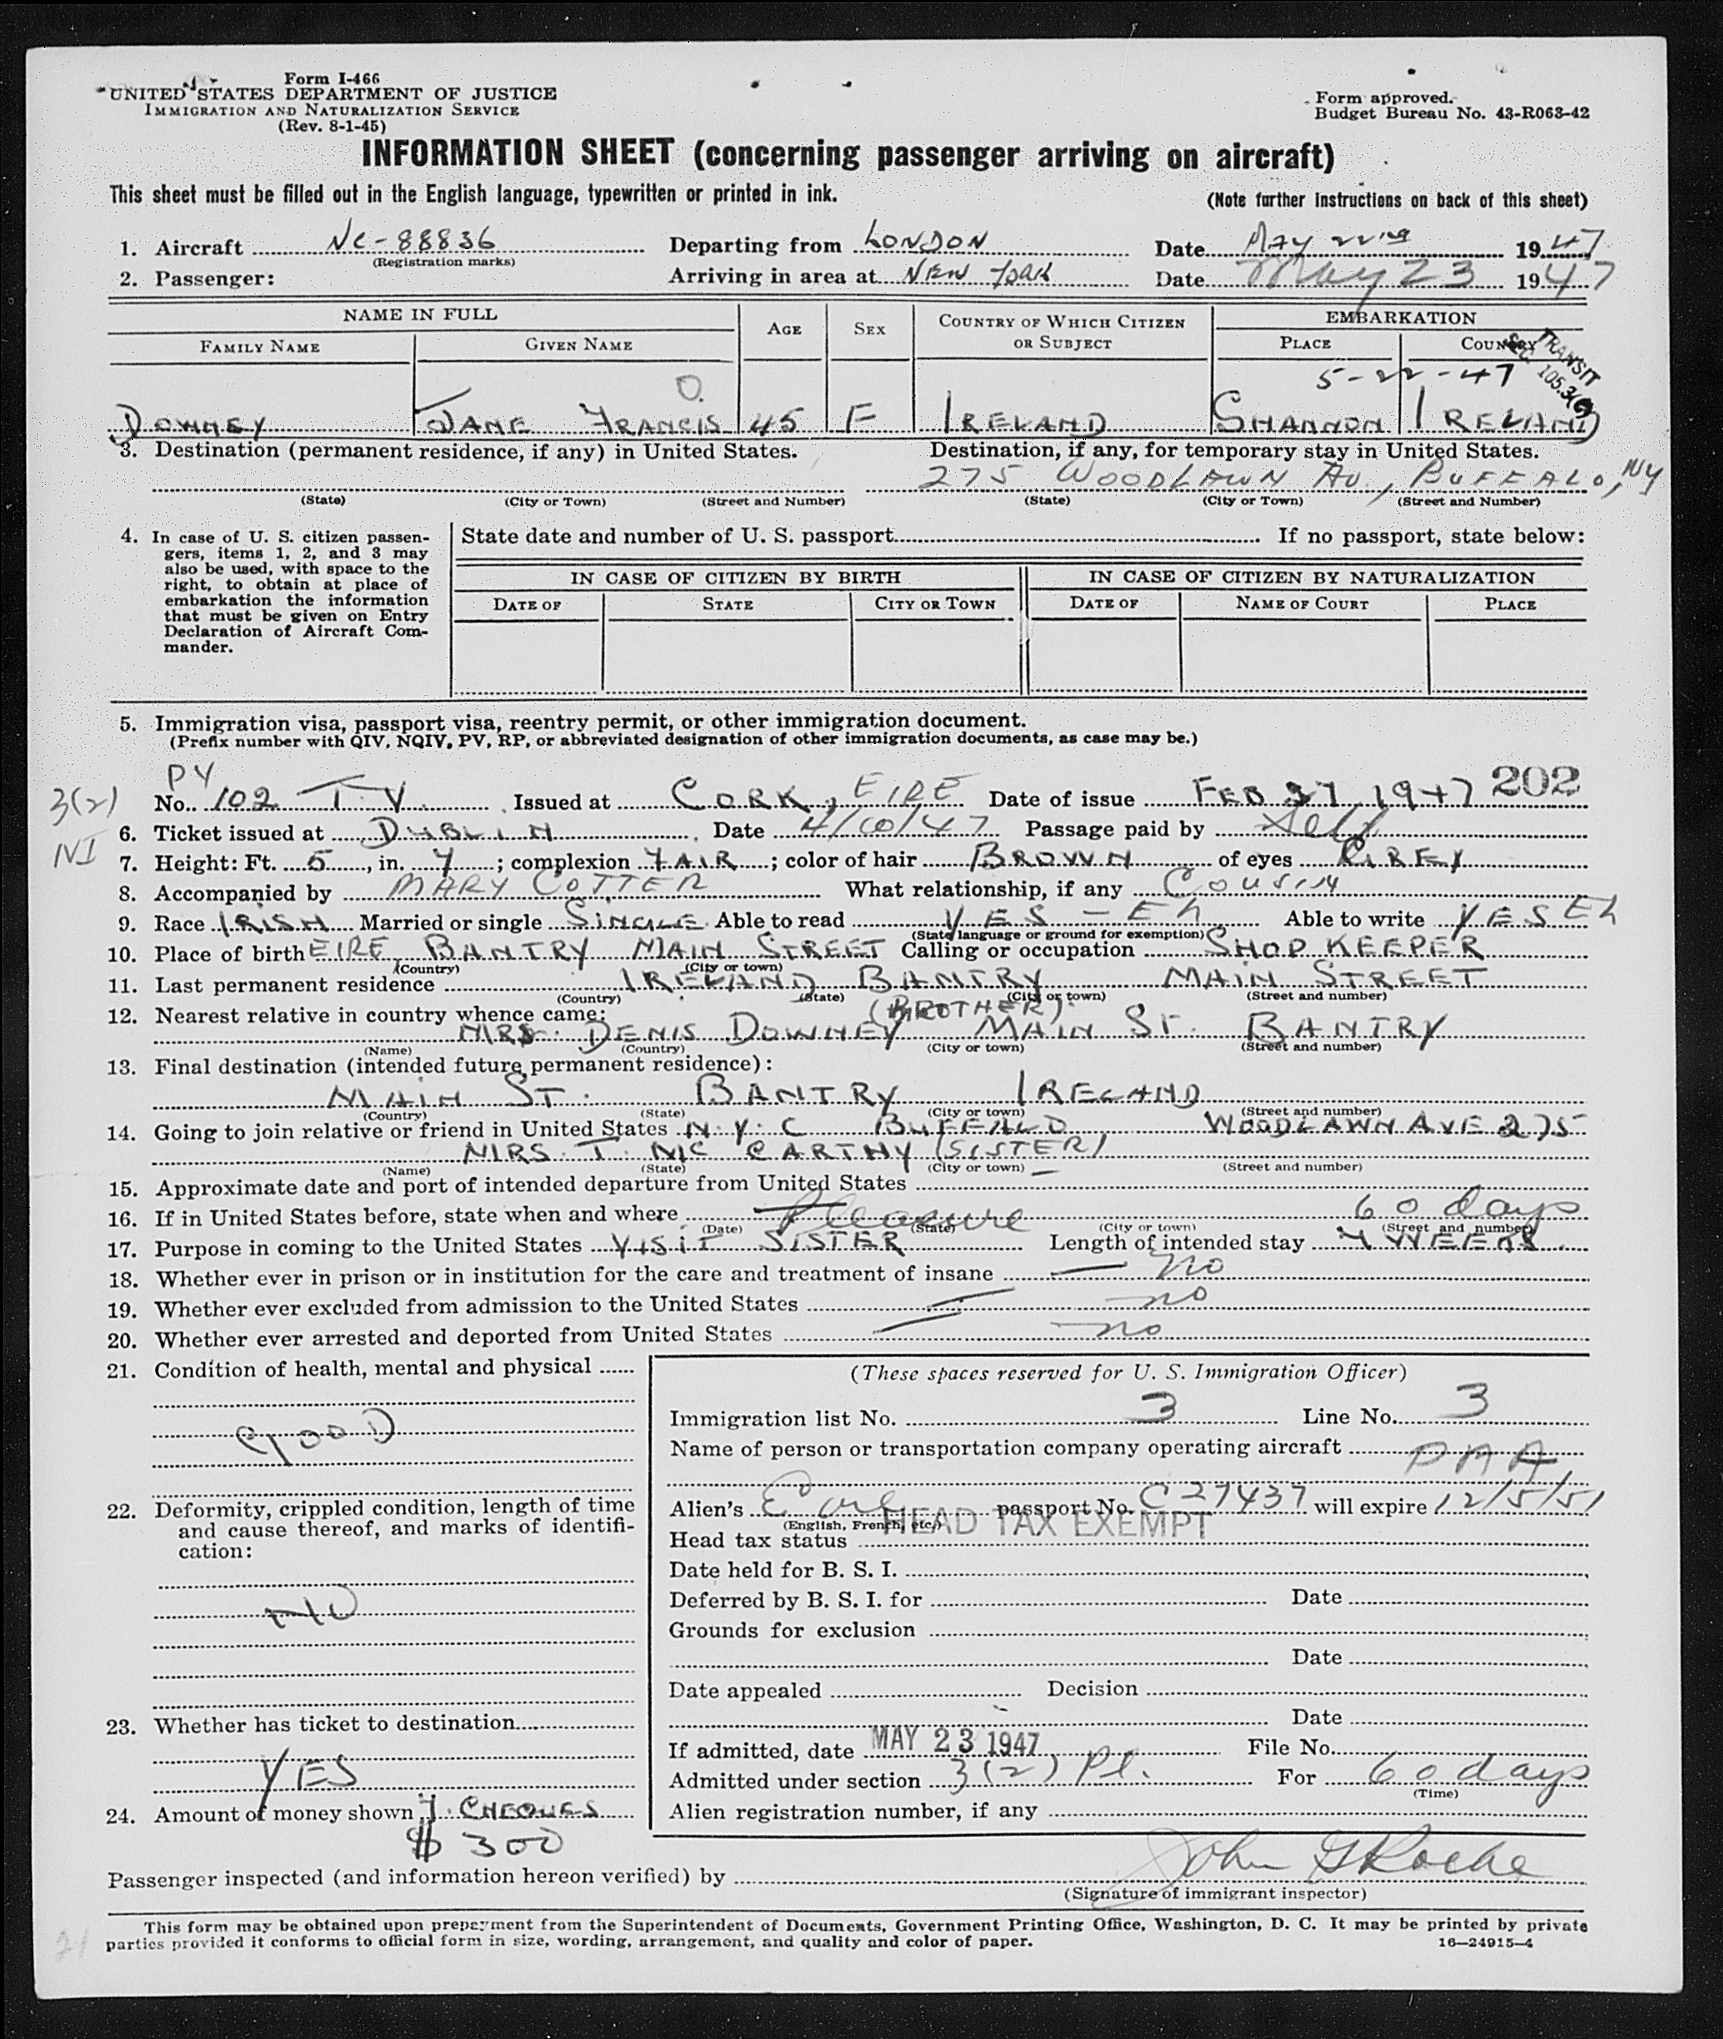 Form I-466
UNITED STATES DEPARTMENT OF JUSTICE
IMMIGRATION AND NATURALIZATION SERVICE
(Rev. 8-1-45)
Form approved.
Budget Bureau No. 43-R063-42
INFORMATION SHEET (concerning passenger arriving on aircraft)
This sheet must be filled out in the English language, typewritten or printed in ink.
(Note further instructions on back of this sheet)
1. Aircraft NC-88836 Departing from LONDON Date MAY 22nd 1947
(Registration marks)
2. Passenger: Arriving in area at NEW YORK Date May 23 1947
NAME IN FULL AGE SEX COUNTRY OF WHICH CITIZEN OR SUBJECT EMBARKATION
FAMILY NAME GIVEN NAME PLACE COUNTRY
TRANSIT
SEC. 105.3(c)
O. 5-22-47
DOWNEY JANE FRANCIS 45 F IRELAND SHANNON IRELAND
3. Destination (permanent residence, if any) in United States. Destination, if any, for temporary stay in United States.
275 WOODLAWN AV., BUFFALO, NY
(State) (City or Town) (Street and Number) (State) (City or Town) (Street and Number)
4. In case of U. S. citizen passengers, items 1, 2, and 3 may also be used, with space to the right, to obtain at place of embarkation the information that must be given on Entry Declaration of Aircraft Commander.
State date and number of U. S. passport If no passport, state below:
IN CASE OF CITIZEN BY BIRTH IN CASE OF CITIZEN BY NATURALIZATION
DATE OF STATE CITY OR TOWN DATE OF NAME OF COURT PLACE
5. Immigration visa, passport visa, reentry permit, or other immigration document.
(Prefix number with QIV, NQIV, PV, RP, or abbreviated designation of other immigration documents, as case may be.)
PV
3(2) No. 102 T.V. Issued at CORK, EIRE Date of issue FEB 27 1947 202
6. Ticket issued at DUBLIN Date 4/10/47 Passage paid by Self
NI
7. Height: Ft. 5, in. 4; complexion FAIR; color of hair BROWN of eyes GREY
8. Accompanied by MARY COTTER What relationship, if any COUSIN
9. Race IRISH Married or single SINGLE Able to read YES - Eh Able to write YES Eh
(State language or ground for exemption)
10. Place of birth EIRE BANTRY MAIN STREET Calling or occupation SHOP KEEPER
(Country) (City or town)
11. Last permanent residence IRELAND BANTRY MAIN STREET
(Country) (State) (City or town) (Street and number)
12. Nearest relative in country whence came: (BROTHER)
MRS. DENIS DOWNEY MAIN ST. BANTRY
(Name) (Country) (City or town) (Street and number)
13. Final destination (intended future permanent residence):
MAIN ST. BANTRY IRELAND
(Country) (State) (City or town) (Street and number)
14. Going to join relative or friend in United States N.Y.C BUFFALO WOODLAWN AVE 275
MRS. T. MC CARTHY (SISTER)
(Name) (State) (City or town) (Street and number)
15. Approximate date and port of intended departure from United States
16. If in United States before, state when and where Pleasure 60 days
(Date) (State) (City or town) (Street and number)
17. Purpose in coming to the United States VISIT SISTER Length of intended stay 4 WEEKS
18. Whether ever in prison or in institution for the care and treatment of insane — no
19. Whether ever excluded from admission to the United States — no
20. Whether ever arrested and deported from United States — no
21. Condition of health, mental and physical
GOOD
22. Deformity, crippled condition, length of time and cause thereof, and marks of identification:
NO
23. Whether has ticket to destination
YES
24. Amount of money shown T. CHEQUES
$ 300
(These spaces reserved for U. S. Immigration Officer)
Immigration list No. 3 Line No. 3
Name of person or transportation company operating aircraft PAA
Alien's passport No. C 27437 will expire 12/5/51
(English, French, etc.)
HEAD TAX EXEMPT
Head tax status
Date held for B. S. I.
Deferred by B. S. I. for Date
Grounds for exclusion
Date
Date appealed Decision
Date
If admitted, date MAY 23 1947 File No.
Admitted under section 3(2) Pl. For 60 days
(Time)
Alien registration number, if any
Passenger inspected (and information hereon verified) by John G Roche
(Signature of immigrant inspector)
This form may be obtained upon prepayment from the Superintendent of Documents, Government Printing Office, Washington, D. C. It may be printed by private
parties provided it conforms to official form in size, wording, arrangement, and quality and color of paper.
16—24915-4
21